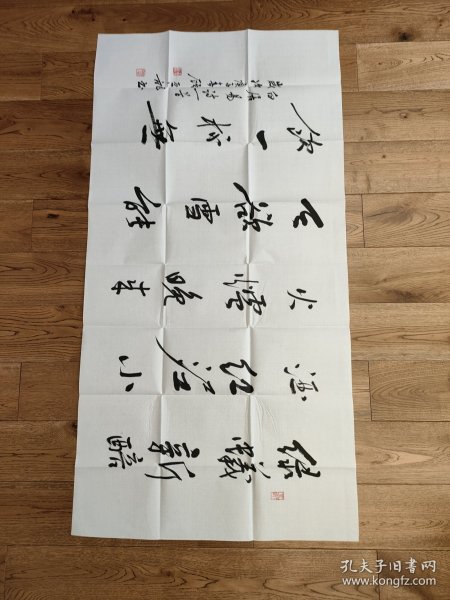 绿蟻新醅
酒紅泥小
火爐晚来
天欲雪能
飲一杯無
白居易詩
孔夫子旧书网
www.kongfz.com